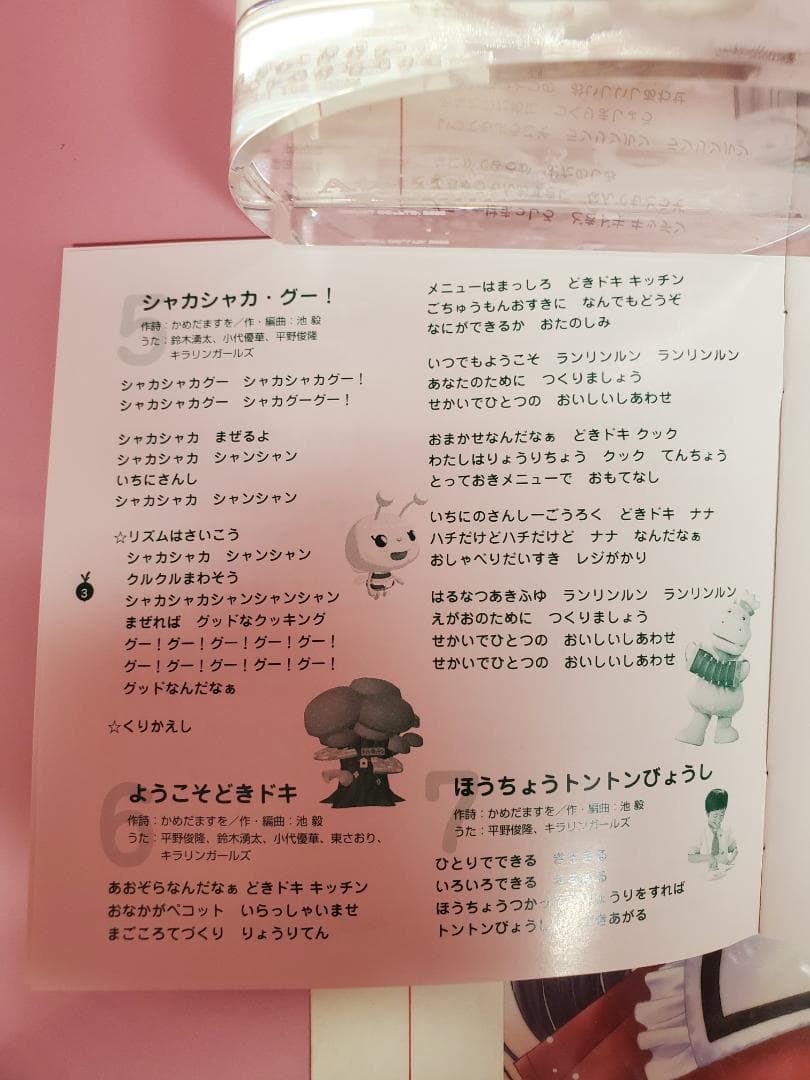 5
シャカシャカ・グー！
作詩：かめだますを／作・編曲：池 毅
うた：鈴木湧太、小代優華、平野俊隆
キラリンガールズ
シャカシャカグー　シャカシャカグー！
シャカシャカグー　シャカグーグー！
シャカシャカ　まぜるよ
シャカシャカ　シャンシャン
いちにさんし
シャカシャカ　シャンシャン
☆リズムはさいこう
シャカシャカ　シャンシャン
クルクルまわそう
シャカシャカシャンシャンシャン
まぜれば　グッドなクッキング
グー！グー！グー！グー！グー！
グー！グー！グー！グー！グー！
グッドなんだなぁ
☆くりかえし
3
6
ようこそどきドキ
作詩：かめだますを／作・編曲：池 毅
うた：平野俊隆、鈴木湧太、小代優華、東さおり、
キラリンガールズ
あおぞらなんだなぁ どきドキ キッチン
おなかがペコット　いらっしゃいませ
まごころてづくり　りょうりてん
メニューはまっしろ　どきドキ キッチン
ごちゅうもんおすきに　なんでもどうぞ
なにができるか　おたのしみ
いつでもようこそ　ランリンルン　ランリンルン
あなたのために　つくりましょう
せかいでひとつの　おいしいしあわせ
おまかせなんだなぁ　どきドキ クック
わたしはりょうりちょう　クック　てんちょう
とっておきメニューで　おもてなし
いちにのさんしーごうろく　どきドキ　ナナ
ハチだけどハチだけど　ナナ　なんだなぁ
おしゃべりだいすき　レジがかり
はるなつあきふゆ　ランリンルン　ランリンルン
えがおのために　つくりましょう
せかいでひとつの　おいしいしあわせ
せかいでひとつの　おいしいしあわせ
7
ほうちょうトントンびょうし
作詩：かめだますを／作・編曲：池 毅
うた：平野俊隆、キラリンガールズ
ひとりでできる
いろいろできる
ほうちょうつかっ ょうりをすれば
トントンびょうし きあがる